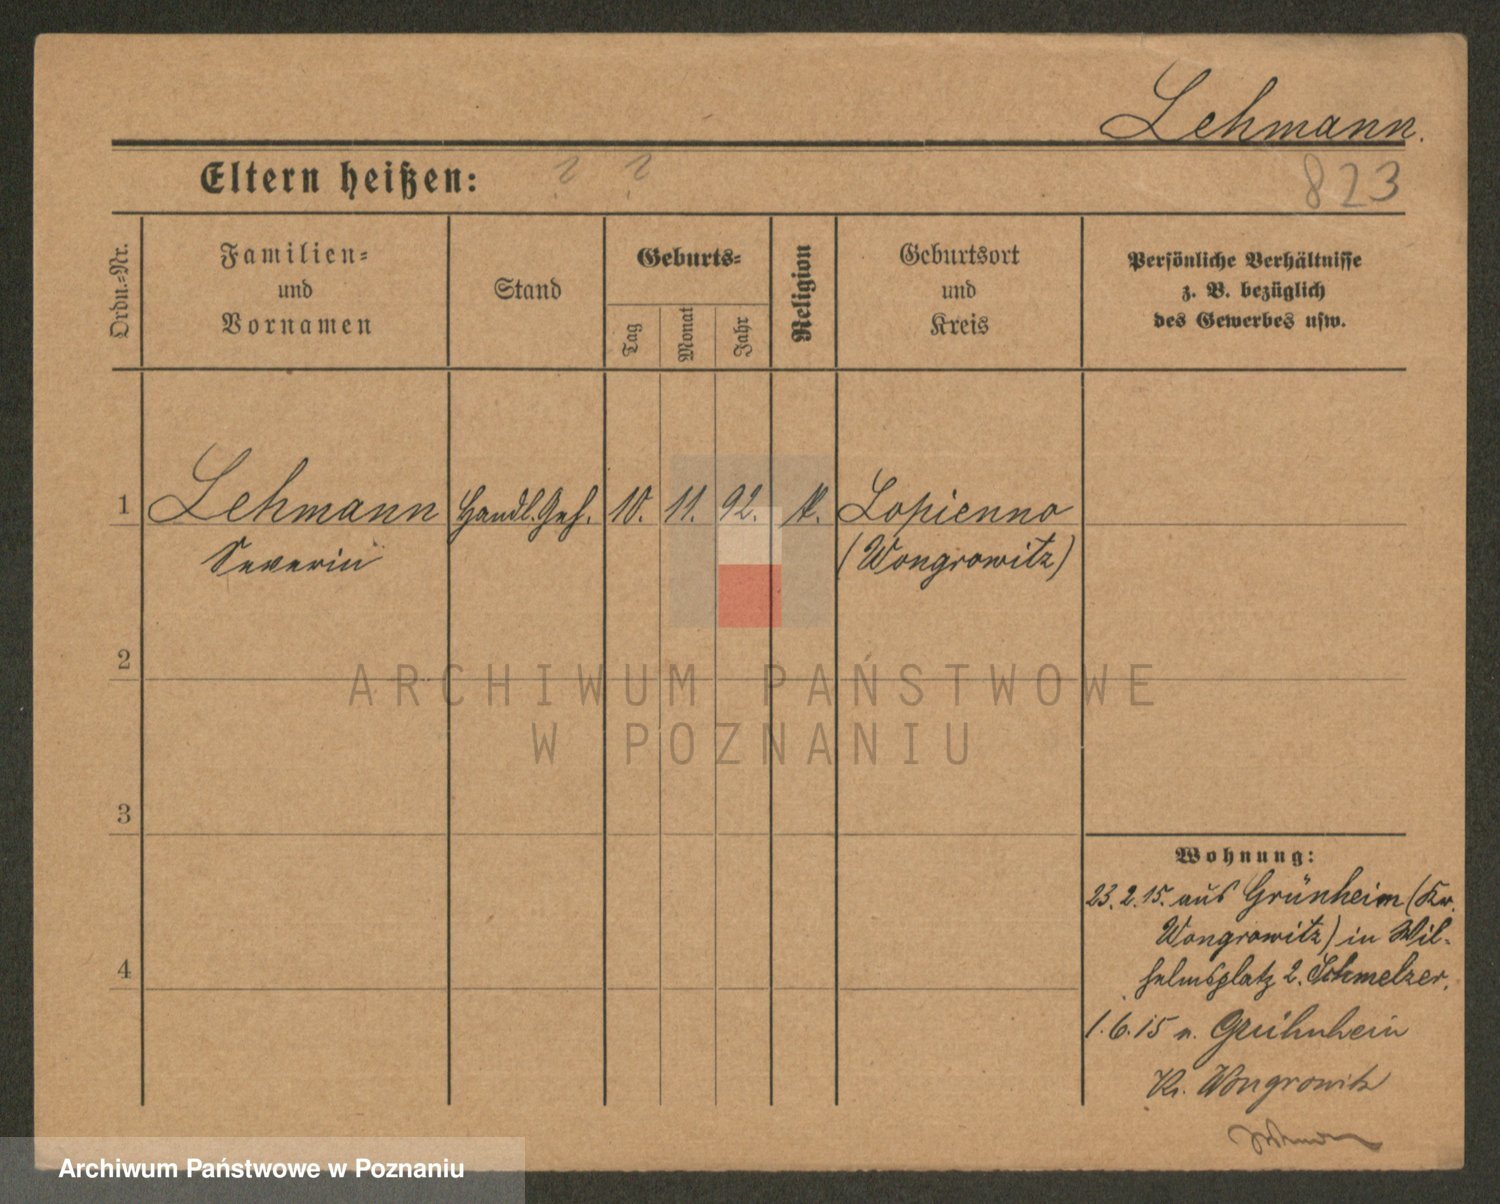 Lehmann.
Eltern heißen: ? ?
823
Ordn.-Nr.
Familien-
und
Vornamen
Stand
Geburts-
Tag
Monat
Jahr
Religion
Geburtsort
und
Kreis
Persönliche Verhältnisse
z. B. bezüglich
des Gewerbes usw.
1 Lehmann Handl. Geh. 10. 11. 92. k. Lopienno
Severin (Wongrowitz)
2
ARCHIWUM PAŃSTWOWE
W POZNANIU
3
Wohnung:
23. 2. 15. aus Grünheim (Kr.
Wongrowitz) in Wil-
helmsplatz 2. Schmelzer.
4
1. 6. 15 n. Grühnhein
Kr. Wongrowitz
Archiwum Państwowe w Poznaniu